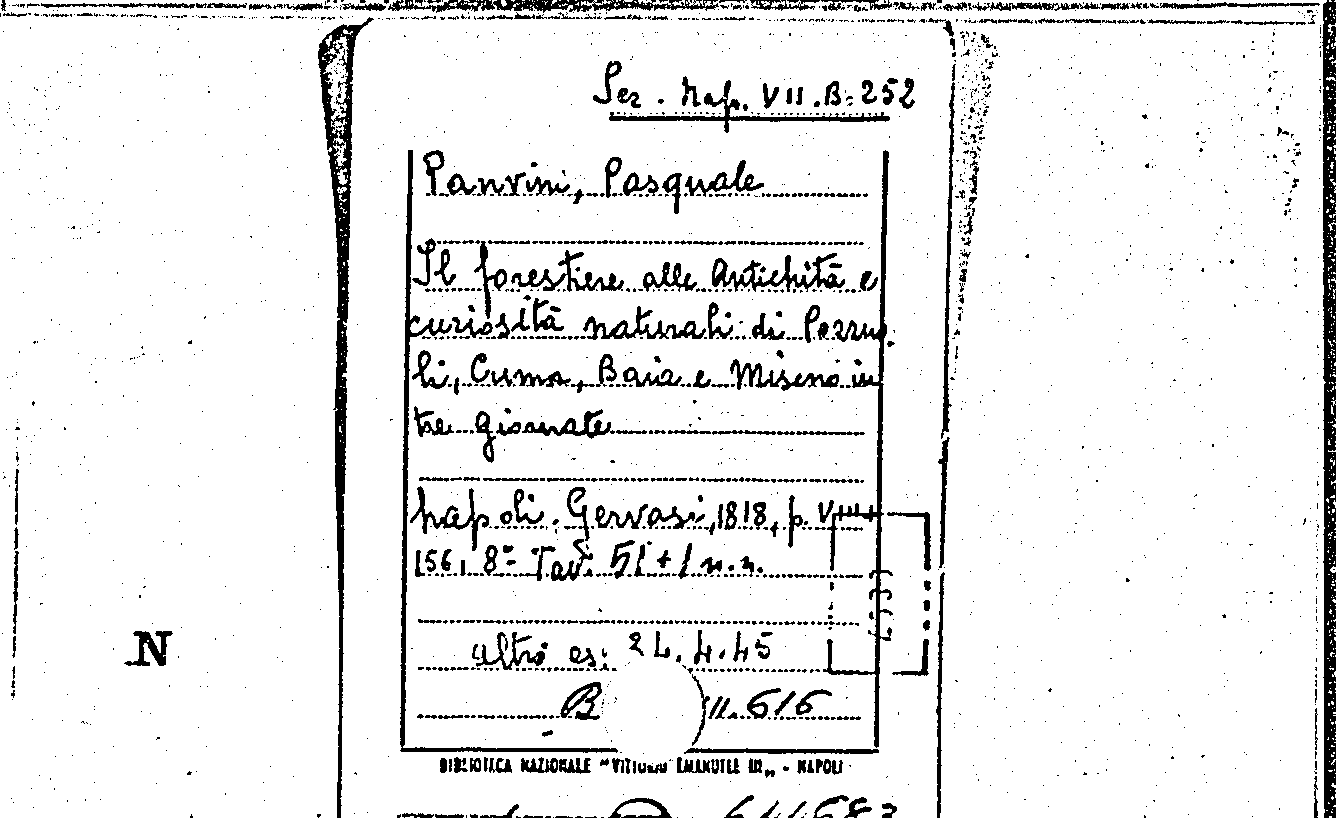 Sez. Nap. VII.B.252
Panvini, Pasquale
Il forestiere alle Antichità e
curiosità naturali di Pozzuo-
li, Cuma, Baia e Miseno in
tre giornate
Napoli. Gervasi, 1818, p. VIII+
156, 8° Tav. 51+1 n.n.
altro es: 24.4.45
B II.616
N
BIBLIOTECA NAZIONALE "VITTORIO EMANUELE III„ - NAPOLI